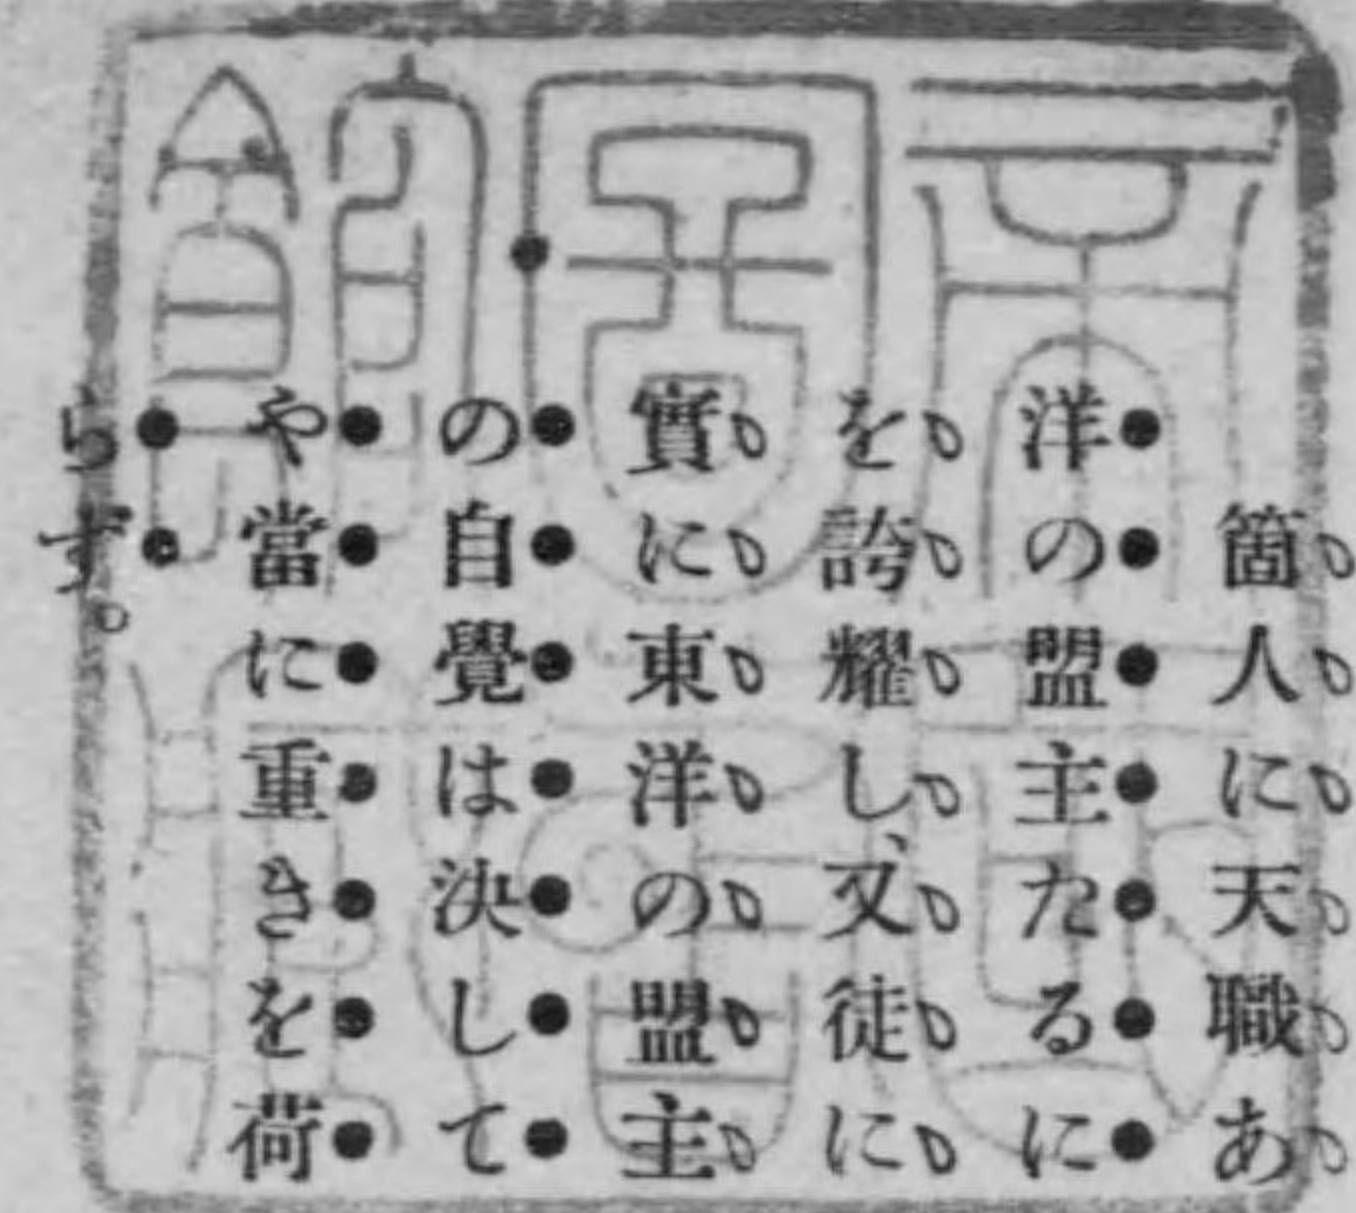 箇人に天職あ
洋の盟主たるに
を誇耀し、又徒に
實に東洋の盟主
の自覺は決して
や當に重きを荷
らず。